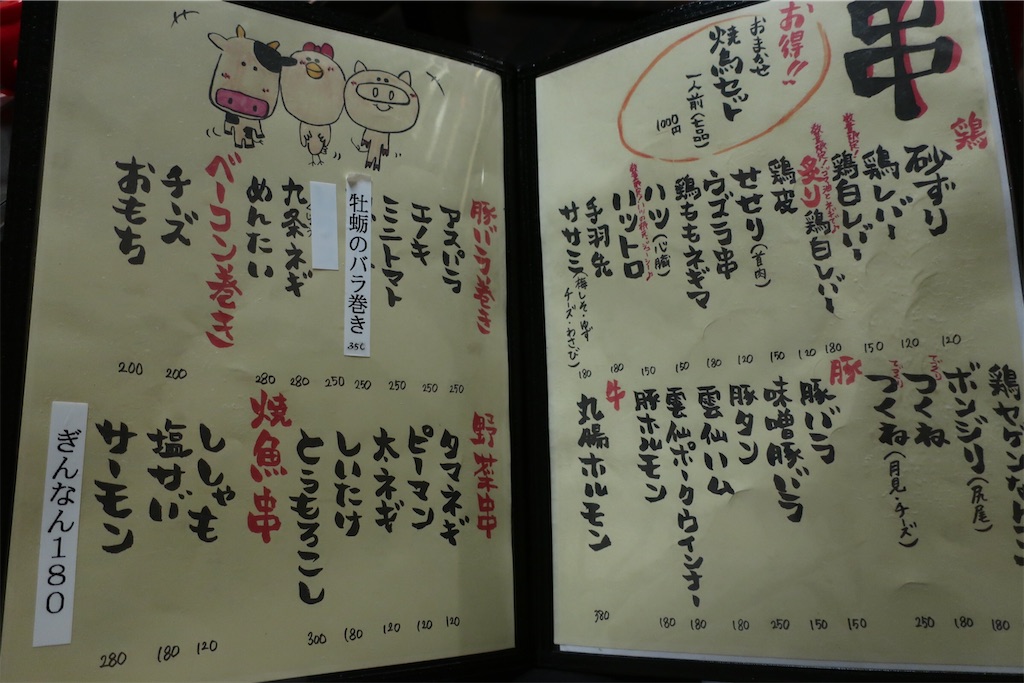 串
お得!!
おまかせ
焼鳥セット
一人前(七品)
1000円
鶏
砂ずり 120
鶏レバー 120
鶏白レバー 150
炙り鶏白レバー 180
鶏皮 120
せせり(首肉) 150
ウズラ串 120
鶏ももネギマ 180
ハツ(心臓) 150
ハツトロ 150
手羽先 180
ササミ(梅しそ・ゆず チーズ・わさび) 180
鶏ヤゲンなんこつ 180
ボンジリ(尻尾) 180
つくね
つくね(月見・チーズ) 250
豚
豚バラ 150
味噌豚バラ 150
豚タン 250
雲仙ハム 180
雲仙ポークウインナー 180
豚ホルモン 180
牛
丸腸ホルモン 380
豚バラ巻き
アスパラ 250
エノキ 250
ミニトマト 250
牡蛎のバラ巻き 350
九条ネギ 280
めんたい 280
ベーコン巻き
チーズ 200
おもち 200
野菜串
タマネギ 120
ピーマン 120
太ネギ 120
しいたけ 180
とうもろこし 300
焼魚串
ししゃも 120
塩サバ 180
サーモン 280
ぎんなん180